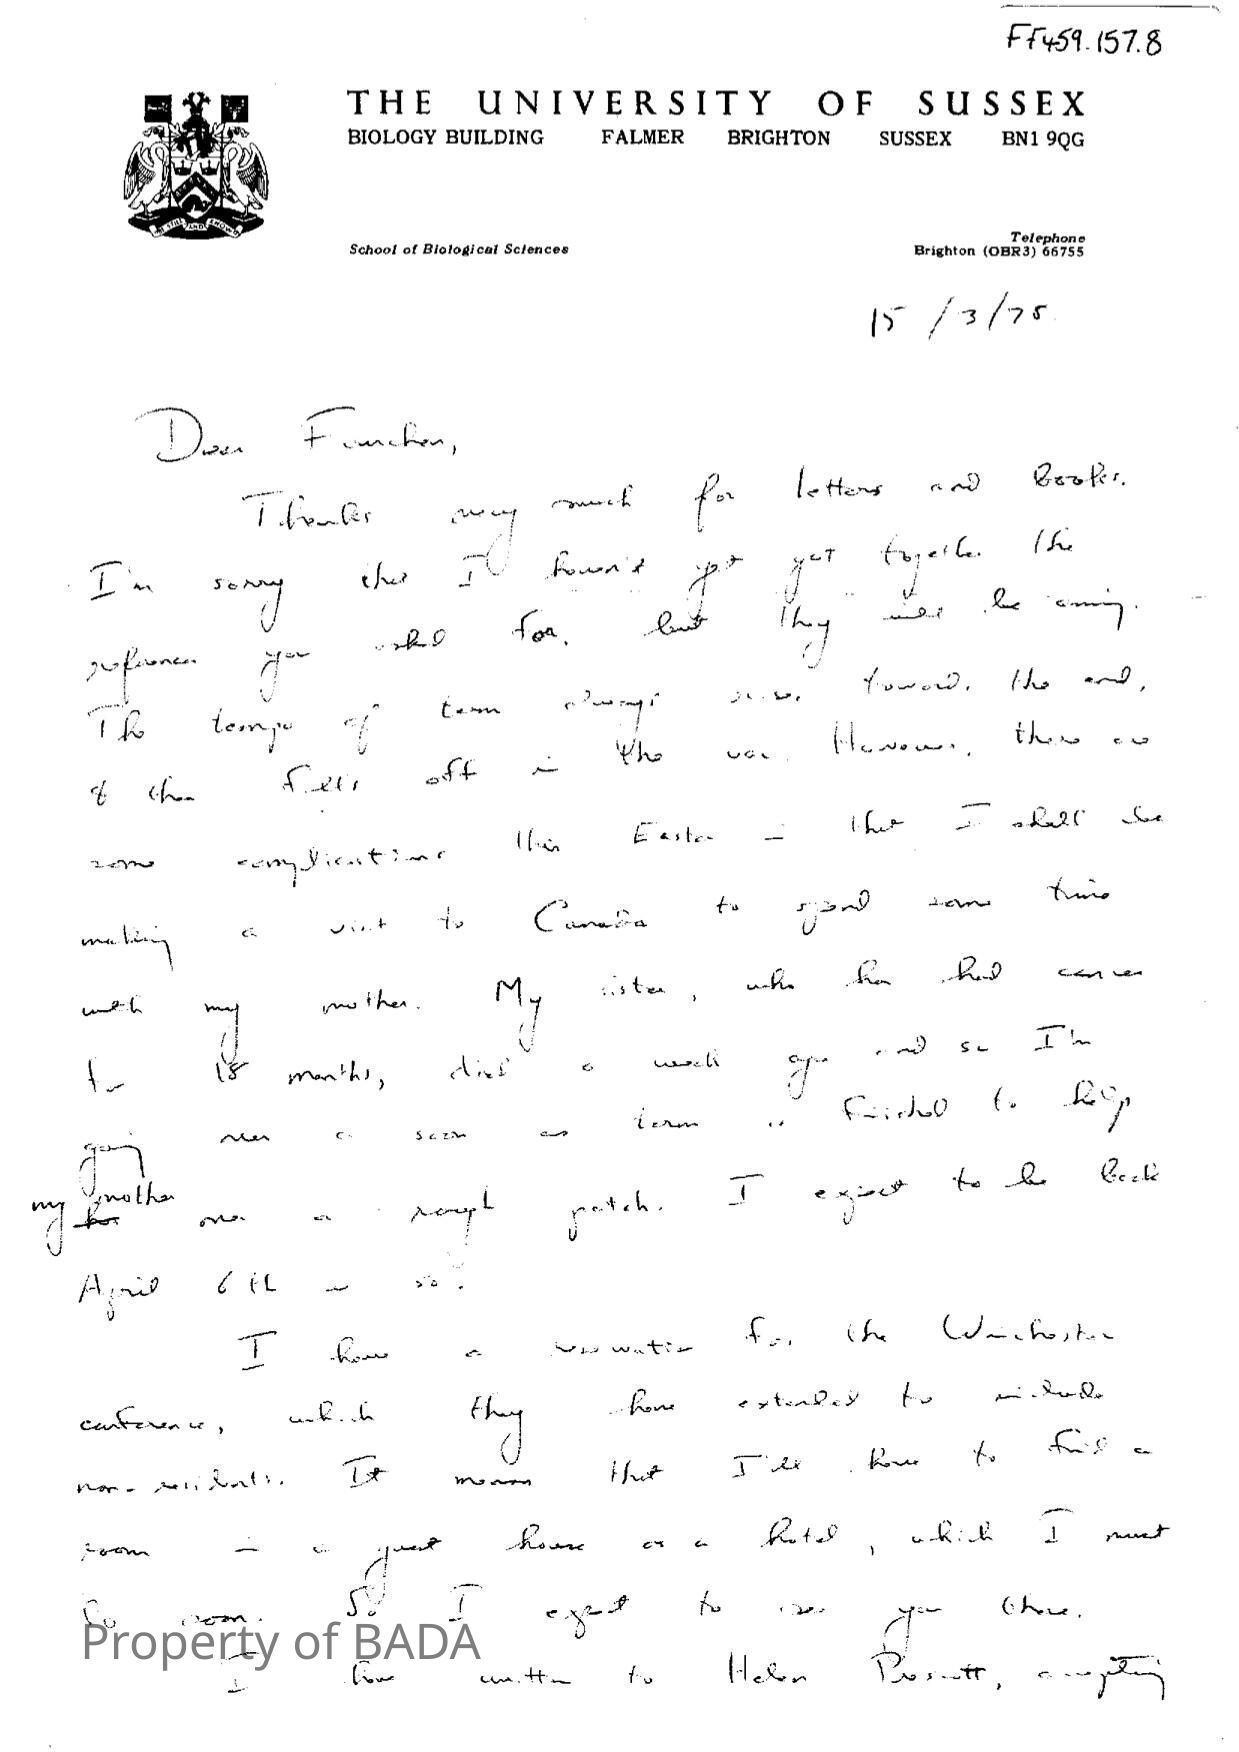 FF459.157.8
THE UNIVERSITY OF SUSSEX
BIOLOGY BUILDING FALMER BRIGHTON SUSSEX BN1 9QG
BE STILL AND KNOW
School of Biological Sciences
Telephone
Brighton (OBR3) 66755
15/3/75
Dear
Thanks very much for letters and books.
I'm sorry that I haven't yet got together the
references you asked for, but they will be coming.
The tempo of term always toward the end,
& then falls off in the vac. However, there are
some complications this Easter in that I shall be
making a visit to Canada to spend some time
with my mother. My sister, who has had cancer
for 18 months, died a week ago and so I'm
going over as soon as term is finished to help
my mother over a rough patch. I expect to be back
April 6th or so.
I have a reservation for the Winchester
conference, which they have extended to include
non-residents. It means that I'll have to find a
room in a guest house or a hotel, which I must
do soon. So I expect to see you there.
I have written to Helen accepting
Property of BADA